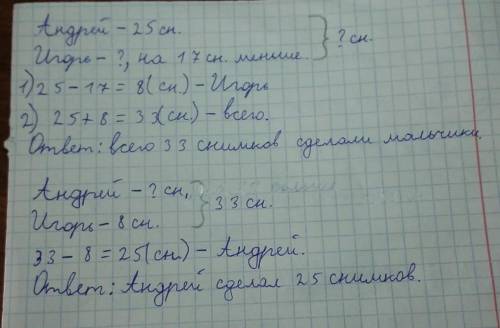 Андрей – 25 сн.
Игорь – ?, на 17 сн. меньше. } ? сн.
1) 25 – 17 = 8 (сн.) – Игорь
2) 25 + 8 = 33 (сн.) – всего.
Ответ: всего 33 снимков сделали мальчики.
Андрей – ? сн.
Игорь – 8 сн. } 33 сн.
33 – 8 = 25 (сн.) – Андрей.
Ответ: Андрей сделал 25 снимков.